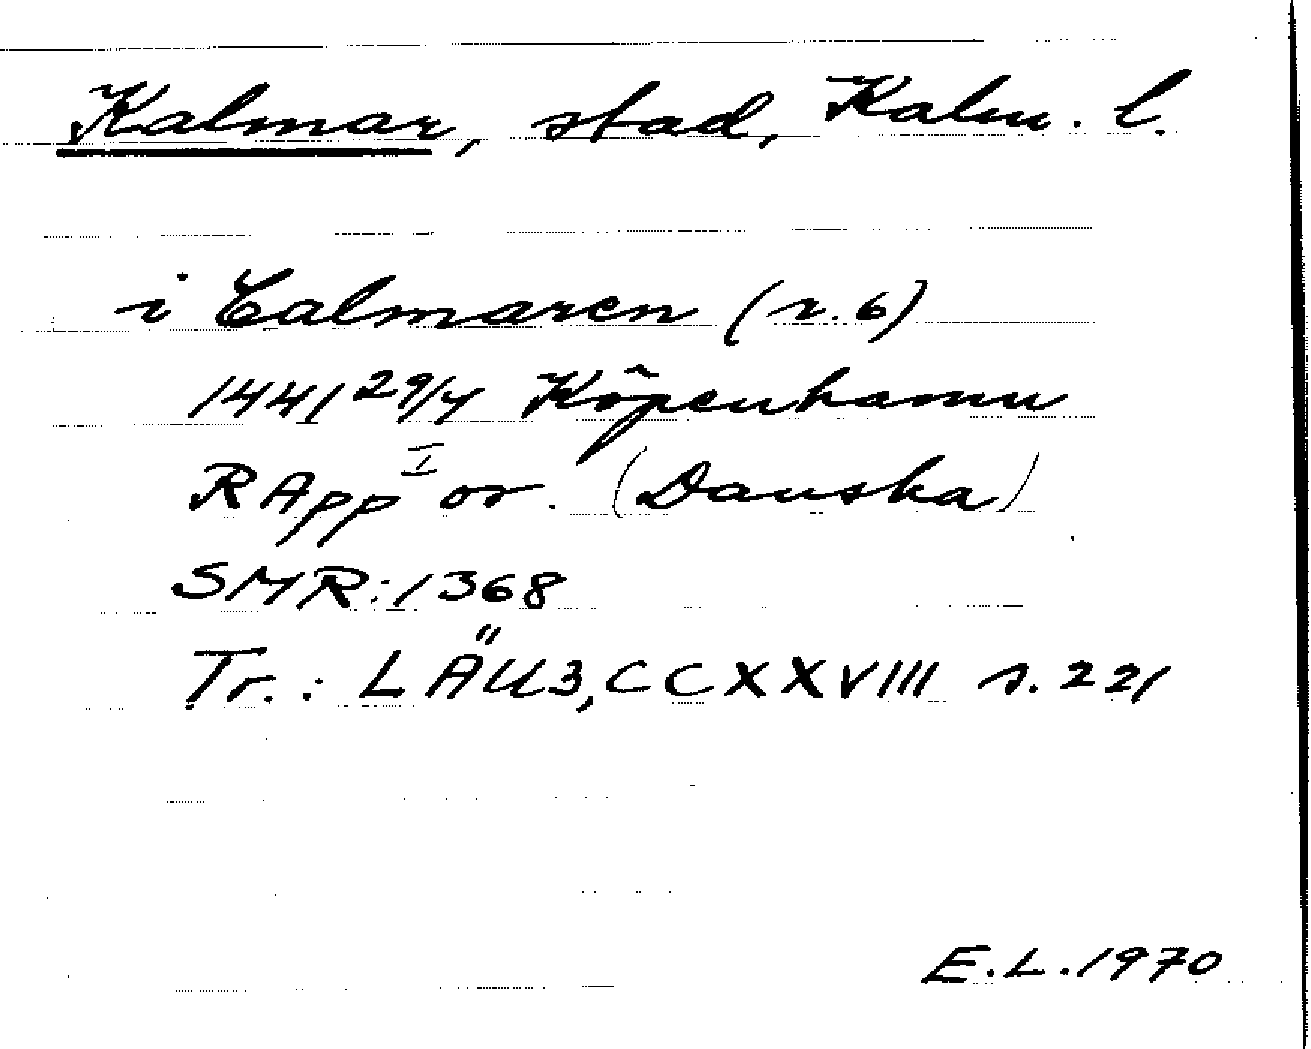 Kalmar, stad, Kalm. l.
i Calmaren (r. 6)
1441 29/4 Köpenhamn
RApp I or. (Danska)
SMR: 1368
Tr.: LÄU3, CCXXVIII s. 221
E.L. 1970